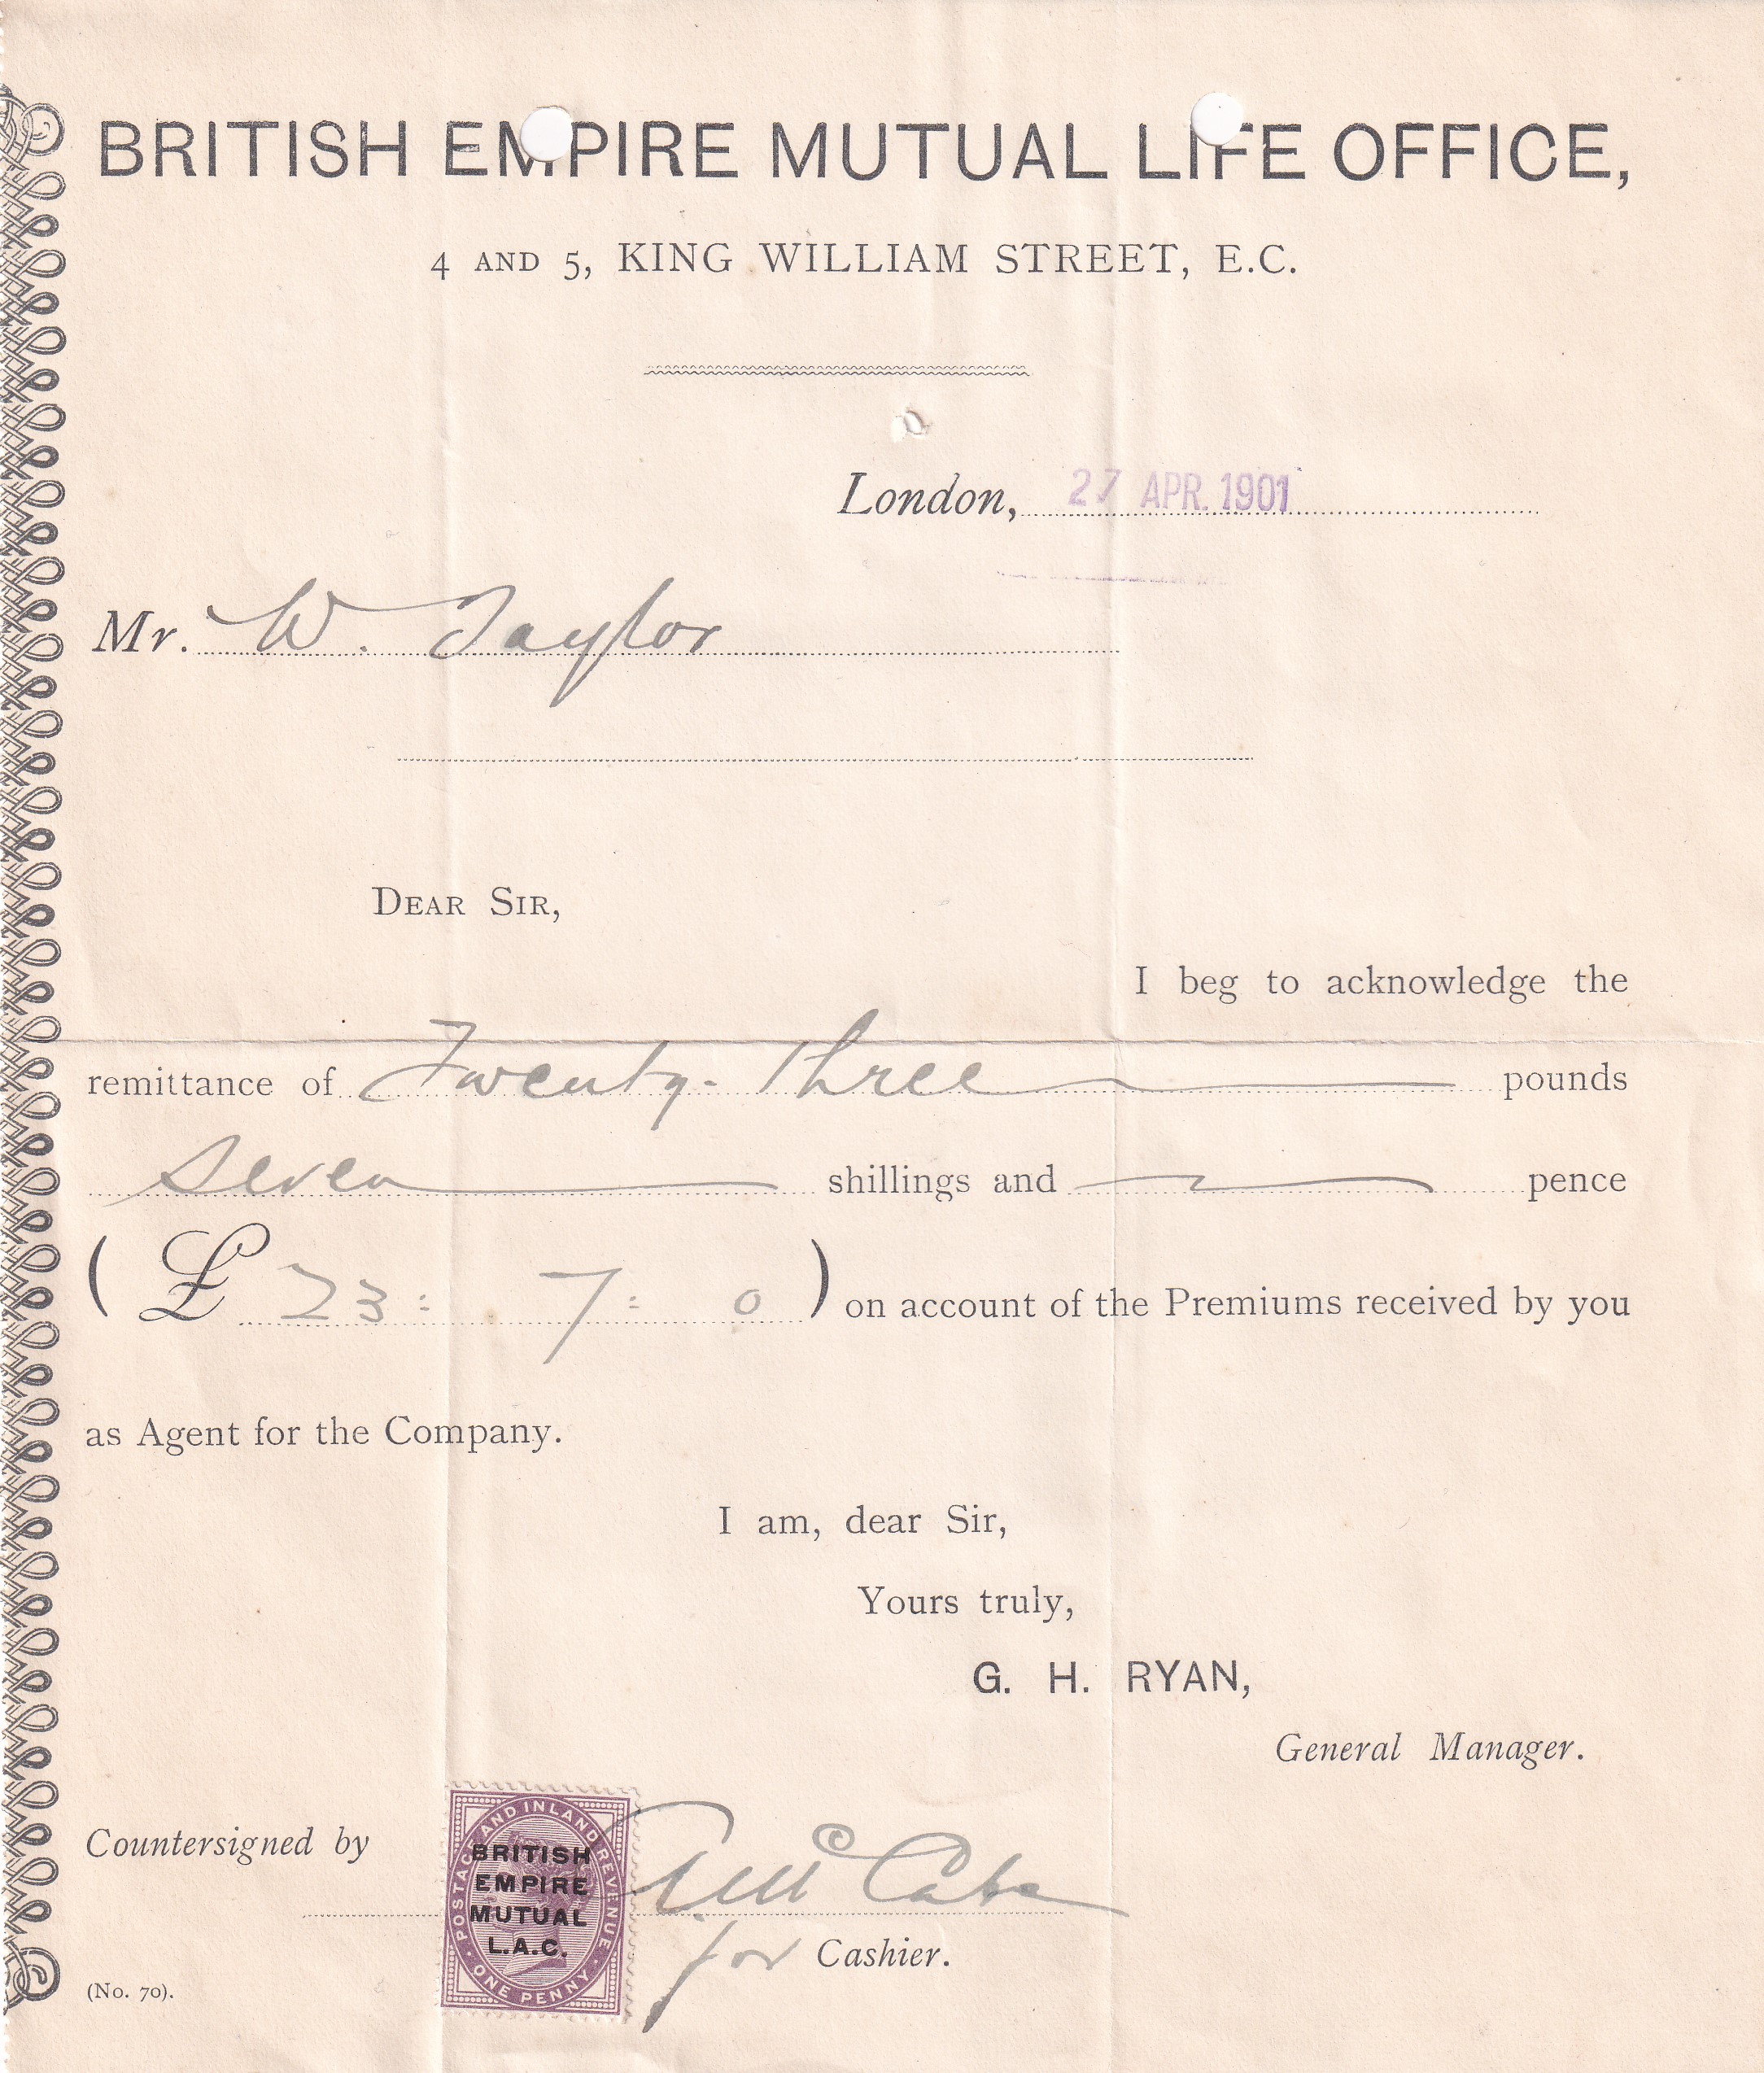 BRITISH EMPIRE MUTUAL LIFE OFFICE,
4 AND 5, KING WILLIAM STREET, E.C.
London, 27 APR. 1901
Mr. W. Taylor
DEAR SIR,
I beg to acknowledge the
remittance of Twenty-three pounds
Seven shillings and pence
(£ 23: 7: 0) on account of the Premiums received by you
as Agent for the Company.
I am, dear Sir,
Yours truly,
G. H. RYAN,
General Manager.
Countersigned by
POSTAGE AND INLAND REVENUE
BRITISH
EMPIRE
MUTUAL
L.A.C.
ONE PENNY
McCabe
for Cashier.
(No. 70).